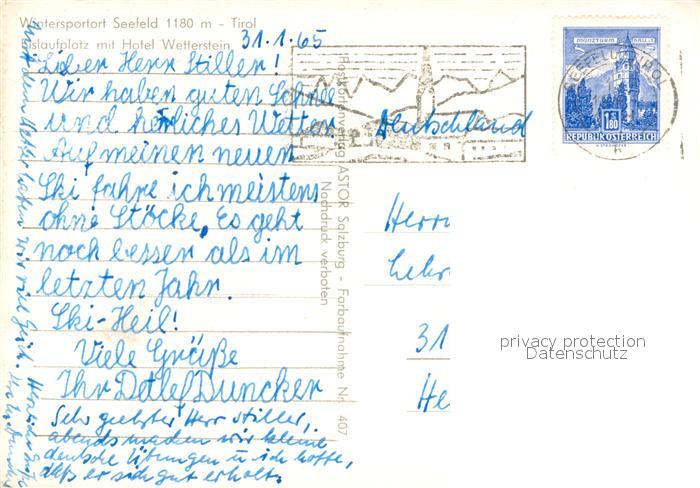 Wintersportort Seefeld 1180 m - Tirol
Eislaufplatz mit Hotel Wetterstein
31.1.65
Lieber Herr Stiller!
Wir haben guten Schnee
und herrliches Wetter.
Auf meinen neuen
Ski fahre ich meistens
ohne Stöcke. Es geht
noch besser als im
letzten Jahr.
Ski-Heil!
Viele Grüße
Ihr Detlef Duncker
Sehr geehrter Herr Stiller,
abends machen wir kleine
deutsche Übungen u. ich hoffe,
daß er sich gut erholt.
Mit dem Wetter haben wir viel Glück.
Herzliche Grüße
Postkartenverlag ASTOR Salzburg - Farbaufnahme Nr. 407
Nachdruck verboten
MÜNZTURM HALL I. T.
1.80
REPUBLIK ÖSTERREICH
SEEFELD, TIROL
Deutschland
Herrn
Lehr
31
He
privacy protection
Datenschutz